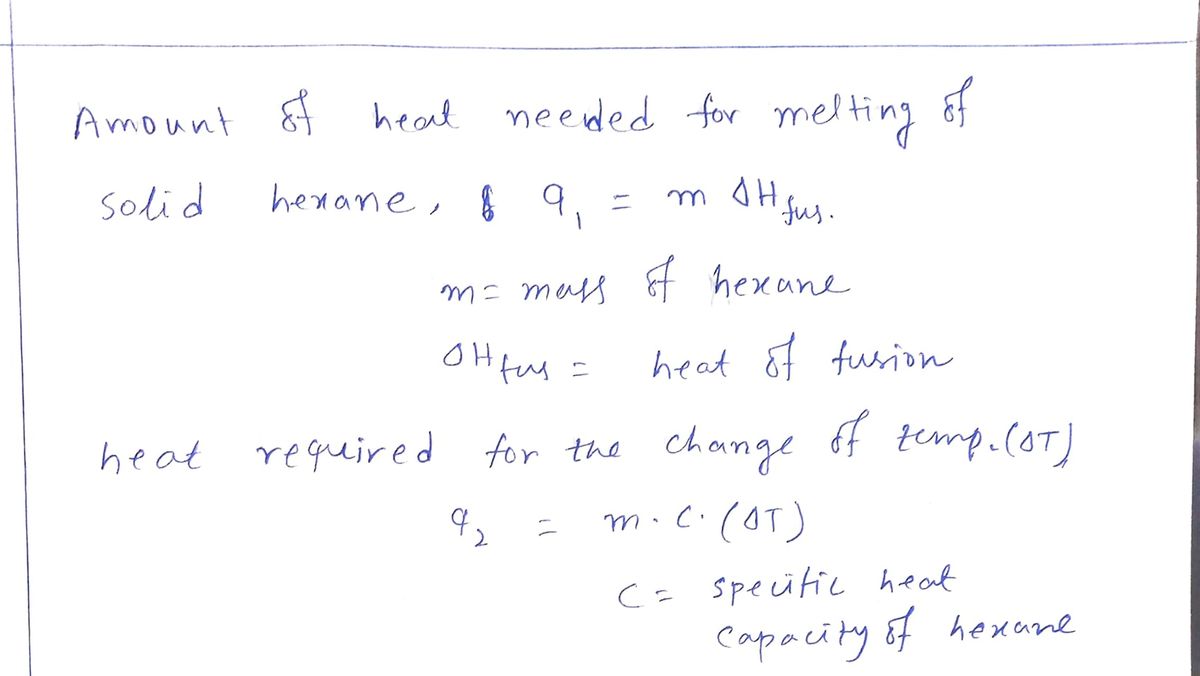 Amount of heat needed for melting of
solid hexane, q₁ = m ΔH fus.
m = mass of hexane
ΔH fus = heat of fusion
heat required for the change of temp. (ΔT)
q₂ = m · C · (ΔT)
C = specific heat
capacity of hexane